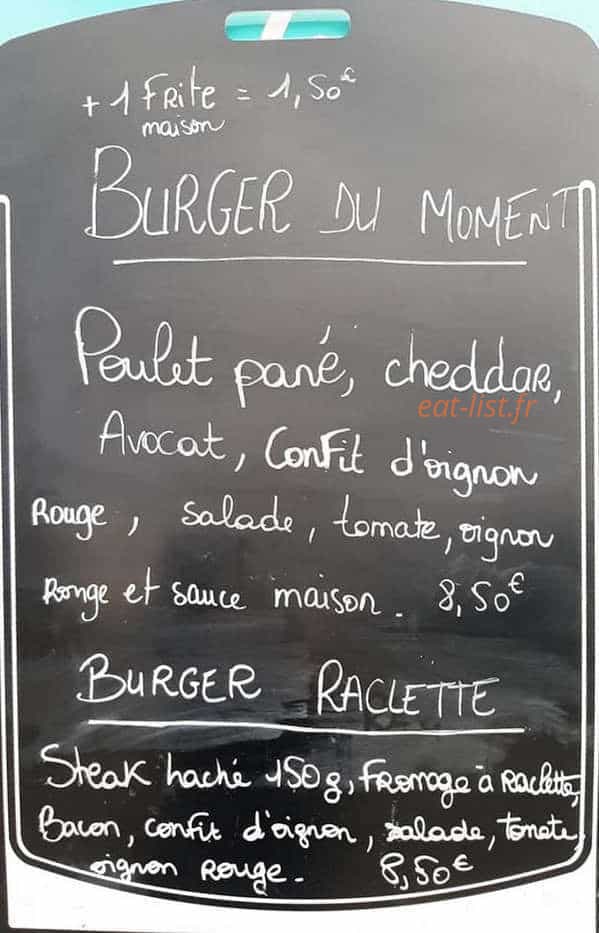 + 1 Frite = 1,50€
maison
BURGER DU MOMENT
Poulet pané, cheddar,
eat-list.fr
Avocat, Confit d'oignon
Rouge, salade, tomate, oignon
Rouge et sauce maison. 8,50€
BURGER RACLETTE
Steak haché 150g, Fromage à Raclette,
Bacon, confit d'oignon, salade, tomate,
oignon Rouge. 8,50€